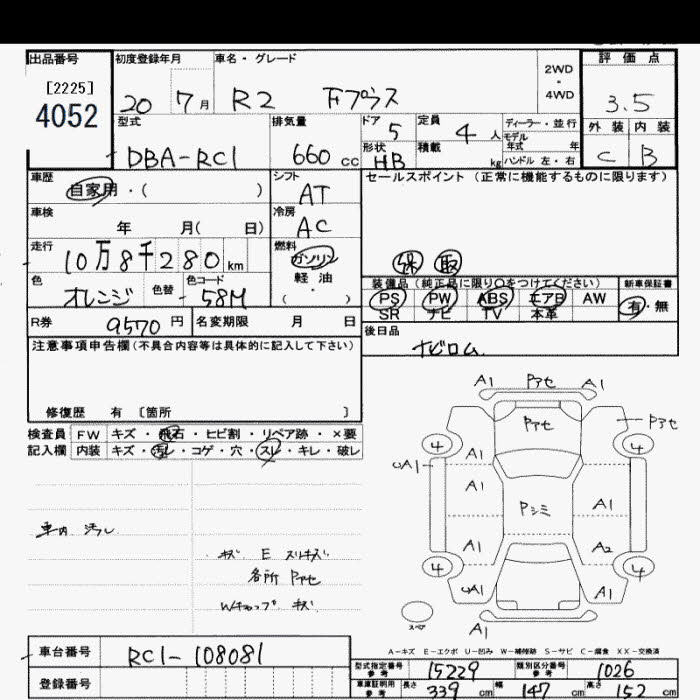 出品番号 初度登録年月 車名・グレード 2WD・4WD 評価点
[2225]
4052
20 7月 R2 Fプラス 3.5
型式 排気量 ドア 5 定員 4人 ディーラー・並行 外装 内装
モデル年式 年
DBA-RC1 660cc 形状 HB 積載 kg ハンドル 左・右 C B
車歴 シフト セールスポイント(正常に機能するものに限ります)
自家用・( ) AT
車検 冷房
年 月( 日) AC
走行 燃料
10万8千280km ガソリン 保 取
軽油
色 色替 色コード ( ) 装備品(純正品に限り○をつけてください) 新車保証書
オレンジ 58M PS PW ABS エアB AW 有・無
SR ナビ TV 本革
R券 9570円 名変期限 月 日 後日品
ナビロム
注意事項申告欄(不具合内容等は具体的に記入して下さい)
修復歴 有〔箇所 〕
検査員 FW キズ・飛石・ヒビ割・リペア跡・×要
記入欄 内装 キズ・汚レ・コゲ・穴・スレ・キレ・破レ
A1 Pアセ A1
Pアセ Pアセ
4 4
A1
UA1
A1 A1
Pシミ
A1 A2
4 4
UA1 A1
スペア A1
車内 汚レ
キズ E スリキズ
各所 Pアセ
Wチップ キズ
A-キズ E-エクボ U-凹み W-補修跡 S-サビ C-腐食 XX-交換済
車台番号 RC1-108081
型式指定番号 参考 15229 類別区分番号 参考 1026
登録番号
車庫証明用 参考 長さ 339cm 幅 147cm 高さ 152cm